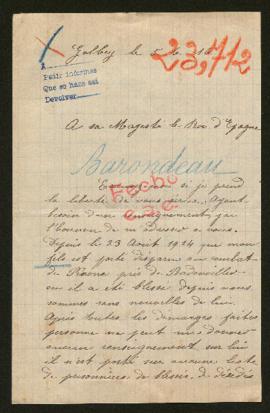 Golbey le 5
23,712
A
Pedir informes
Que se haga así
Devolver
A sa Magesté le Roi d'Espagne
Barondeau
si je prend
la liberté de vous
besoin d'un renseignement j'ai
l'honneur de m'adresser a vous.
Fecho
Depuis le 23 Août 1914 que mon
fils est porté disparu au combat
de près de Badonviller
ou il a été blessé, depuis nous
sommes sans nouvelles de lui.
Après toutes les démarches faites
personne ne peut me donner
aucun renseignement sur lui
il n'est porté sur aucune liste
de prisonniers, de blessés, de décédés